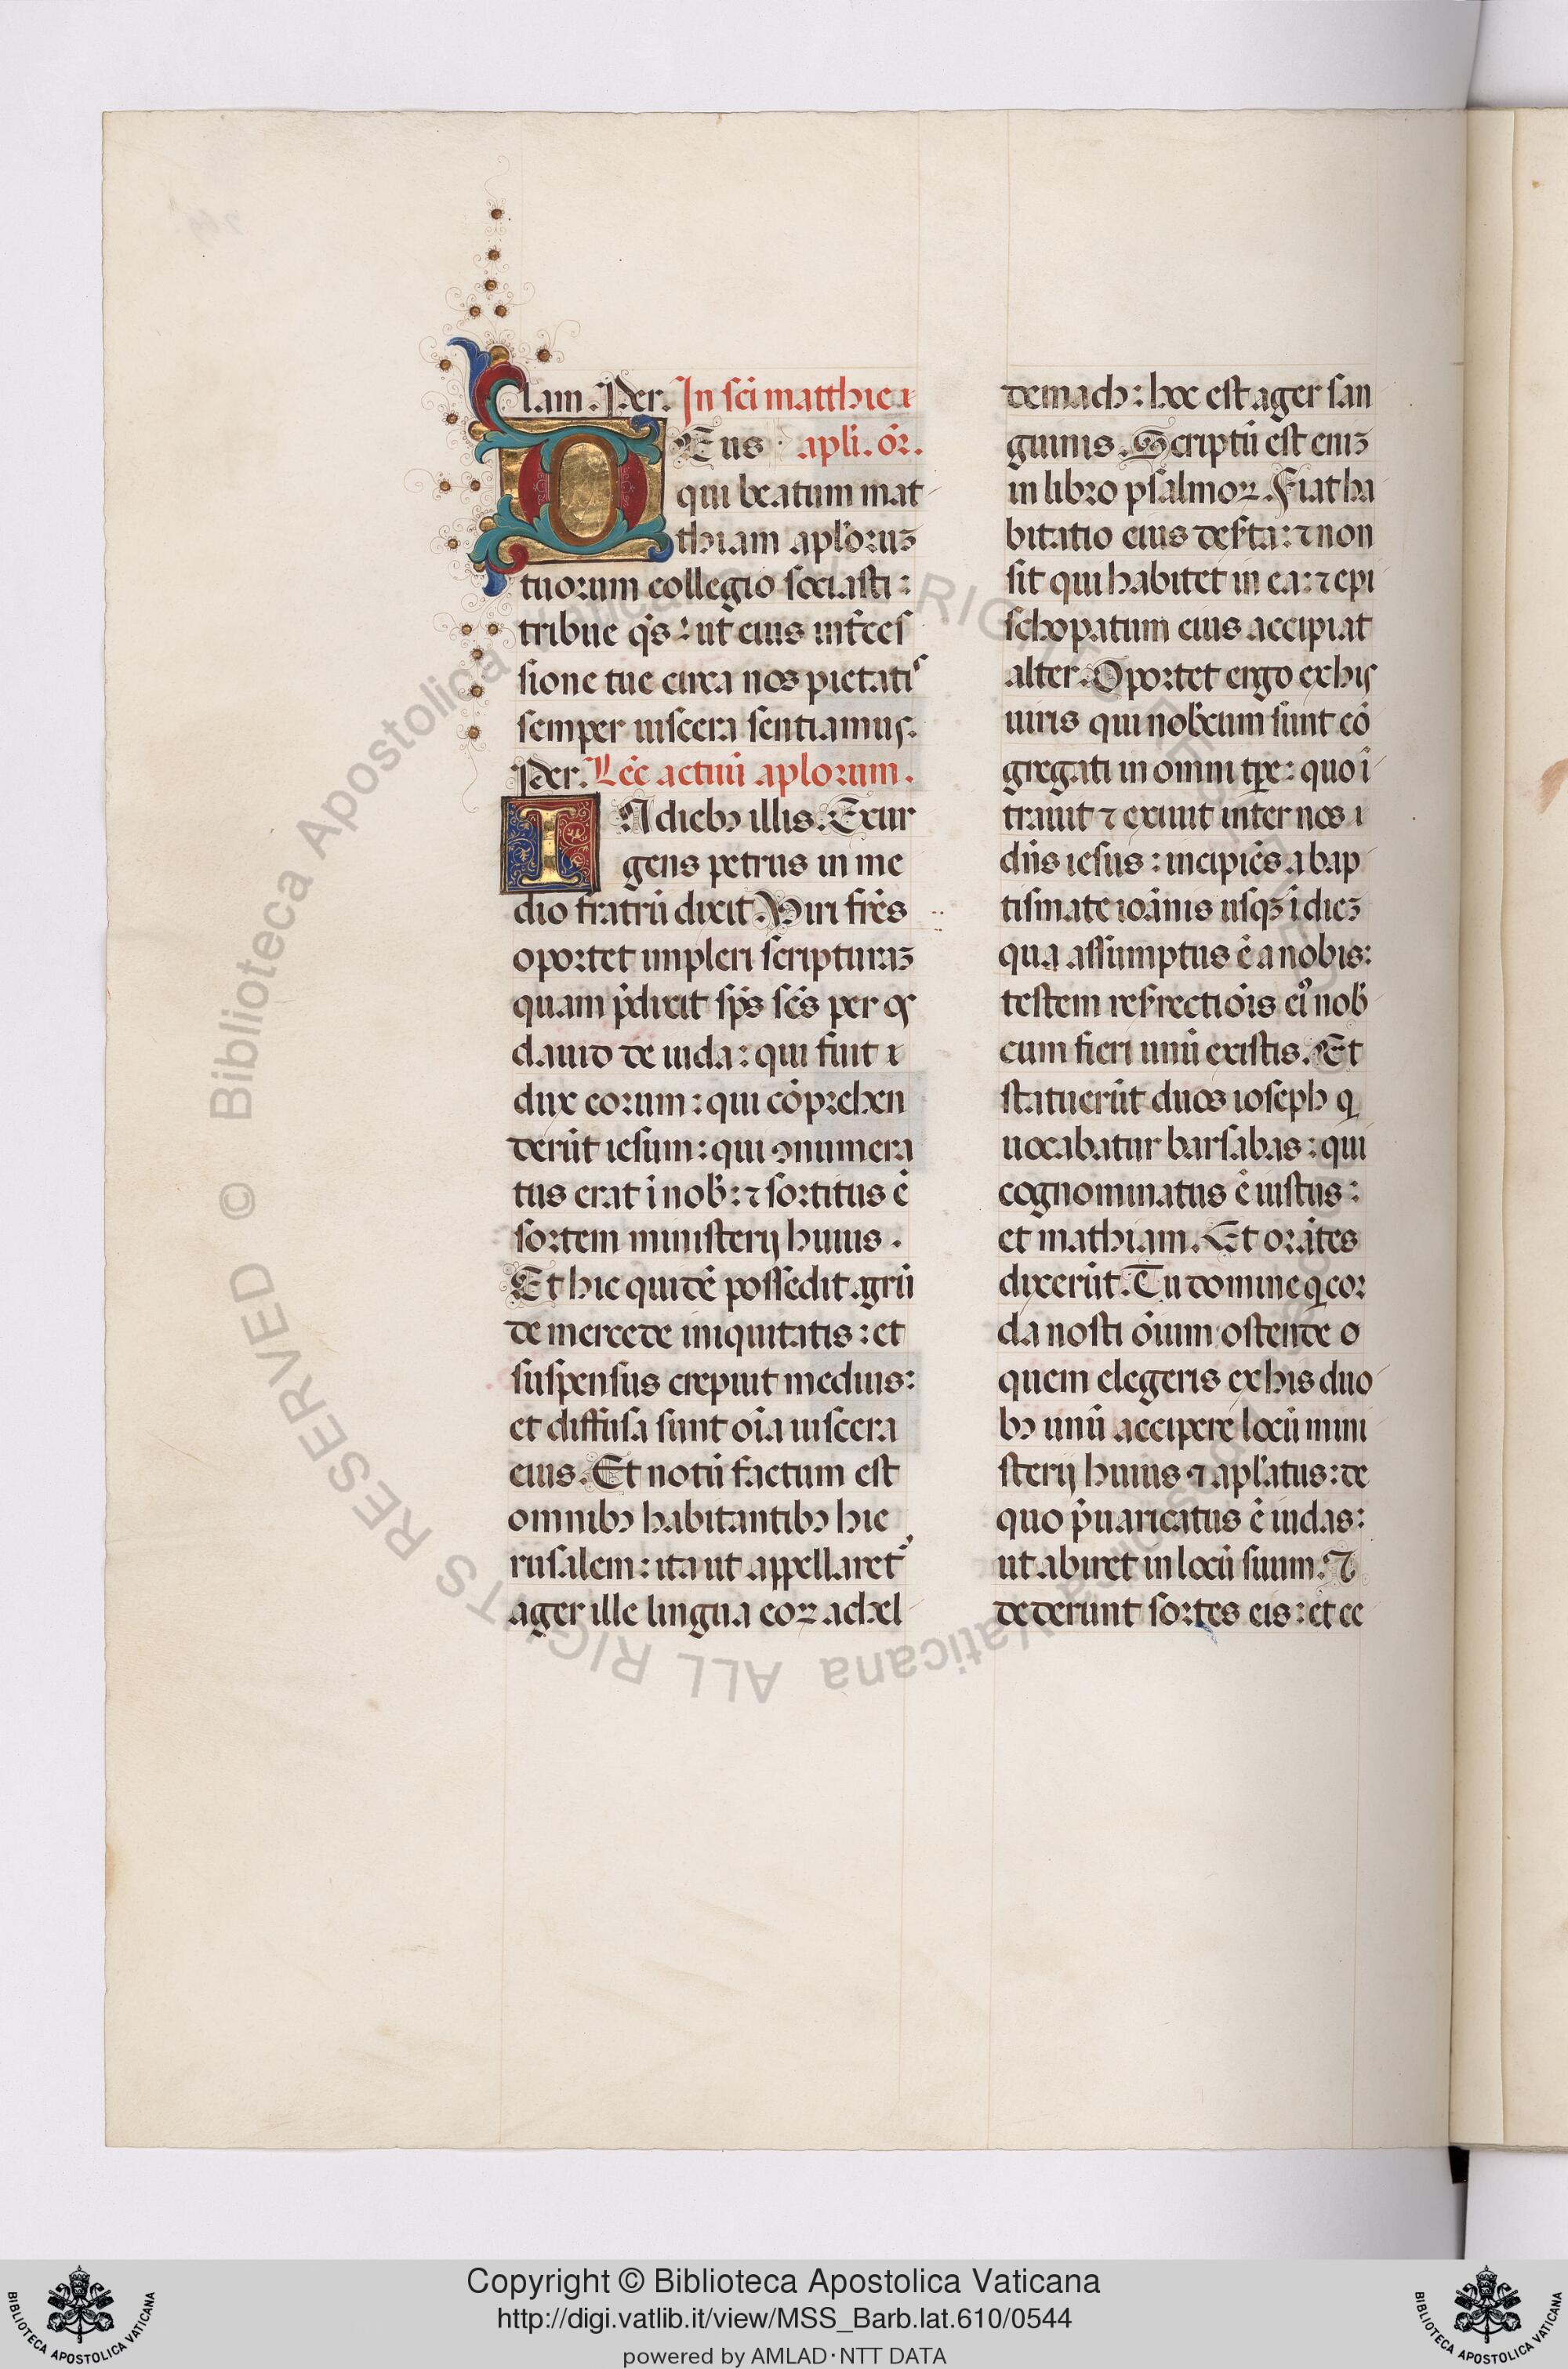 lam. Per. In sci matthie i
DEus apli. or̄.
qui beatum mat
thiam aploruꝫ
tuorum collegio sociasti:
tribue qs̄: ut eius int̄ces
sione tue circa nos pietatis
semper uiscera sentiamus.
Per. Lec̄ actuū aplorum.
IN diebꝫ illis. Exur
gens petrus in me
dio fratrū dixit. Viri fr̄es
oportet impleri scripturaꝫ
quam p̄dixit sp̄s sc̄s per os
dauid de iuda: qui fuit
dux eorum: qui cōprehen
derūt iesum: qui ꝯnumera
tus erat ī nob̄: ⁊ sortitus ē
sortem ministerij huius.
Et hic quidē possedit agrū
de mercede iniquitatis: et
suspensus crepuit medius:
et diffusa sunt oīa uiscera
eius. Et notū factum est
omnibꝫ habitantibꝫ hie
rusalem: ita ut appellaret᷑
ager ille lingua eoꝝ achel
demach: hoc est ager san
guinis. Scriptū est eniꝫ
in libro psalmoꝝ. Fiat ha
bitatio eius des̄ta: ⁊ non
sit qui habitet in ea: ⁊ epi
schopatum eius accipiat
alter. Oportet ergo ex his
uiris qui nob̄cum sunt cō
gregati in omni tp̄e: quo ī
trauit ⁊ exiuit inter nos
dn̄s iesus: incipiēs a bap
tismate ioānis usqꝫ ī dieꝫ
qua assumptus ē a nobis:
testem resr̄rectiōis eiꝰ nob̄
cum fieri unū ex istis. Et
statuerūt duos ioseph q̄
uocabatur barsabas: qui
cognominatus ē iustus:
et mathiam. Et orātes
dixerūt. Tu domine q̄ cor
da nosti ōium ostende
quem elegeris ex his duo
bꝫ unū accipere locū mini
sterij huius ⁊ apl̄atus: de
quo p̄uaricatus ē iudas:
ut abiret in locū suum. ⁊
dederunt sortes eis: et ce
© Biblioteca Apostolica Vaticana ALL RIGHTS RESERVED
Copyright © Biblioteca Apostolica Vaticana
http://digi.vatlib.it/view/MSS_Barb.lat.610/0544
powered by AMLAD·NTT DATA
BIBLIOTECA APOSTOLICA VATICANA
BIBLIOTECA APOSTOLICA VATICANA